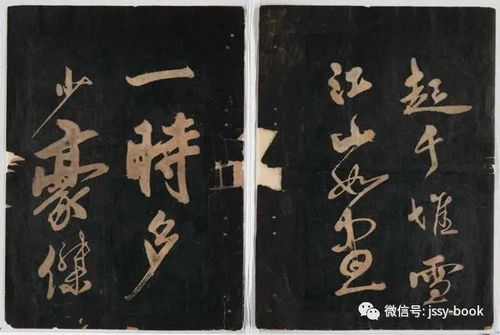 起千堆雪
江山如画
一時多
少豪傑
微信号: jssy-book